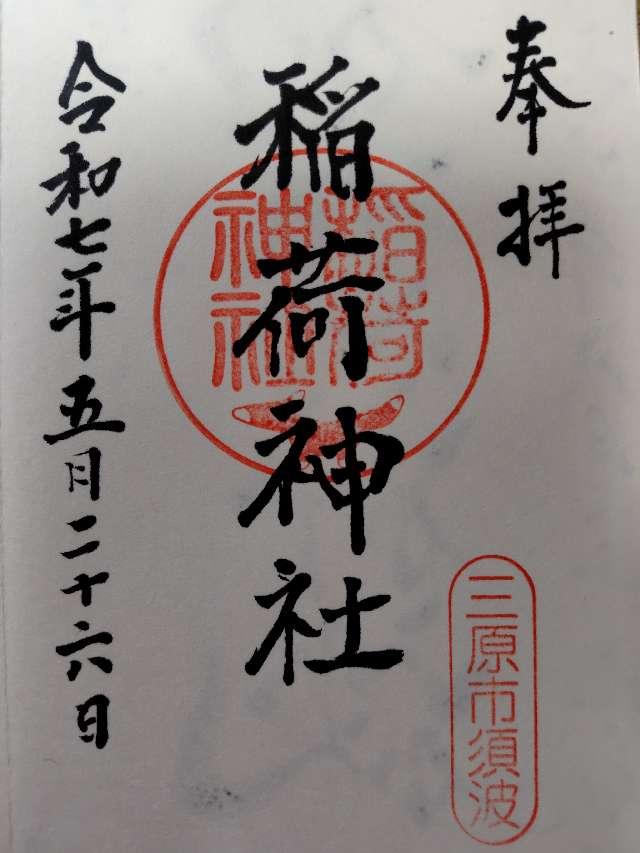 奉拝
稲荷神社
稲荷
神社
三原市須波
令和七年五月二十六日